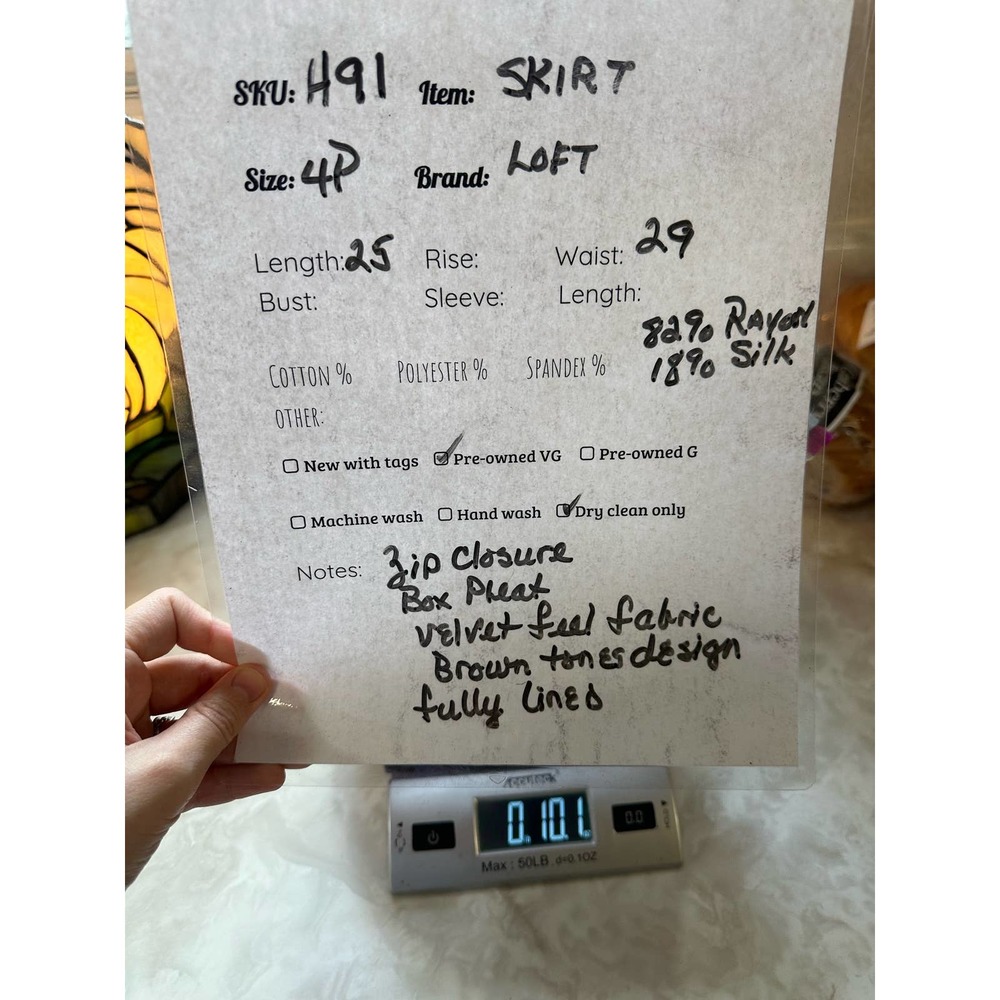 SKU: H91 Item: SKIRT
Size: 4P Brand: LOFT
Length: 25 Rise: Waist: 29
Bust: Sleeve: Length:
82% Rayon
18% Silk
COTTON % POLYESTER % SPANDEX %
OTHER:
New with tags Pre-owned VG Pre-owned G
Machine wash Hand wash Dry clean only
Notes: Zip Closure
Box Pleat
Velvet feel fabric
Brown tones design
fully lined
Accuteck
0.10.1
0.0
Max : 50LB . d=0.1OZ